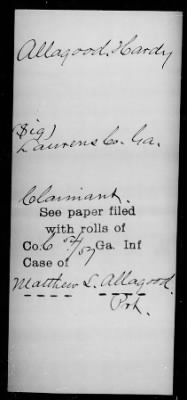 Allagood, Hardy
(Sig)
Laurens Co. Ga.
Claimant.
See paper filed
with rolls of
Co. C 57 Ga. Inf
Case of
Matthew L. Allagood.
Prt.